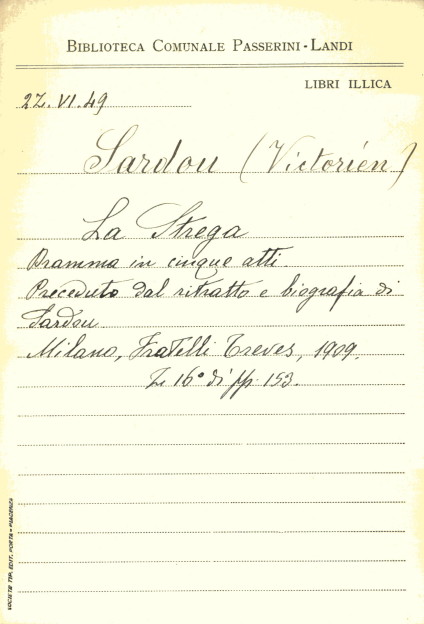 BIBLIOTECA COMUNALE PASSERINI-LANDI
LIBRI ILLICA
27.VI.49
Sardou (Victorién)
La Strega
Dramma in cinque atti.
Preceduto dal ritratto e biografia di
Sardou.
Milano, Fratelli Treves, 1909.
In 16° di pp. 153.
SOCIETÀ TIP. EDIT. PORTA - PIACENZA